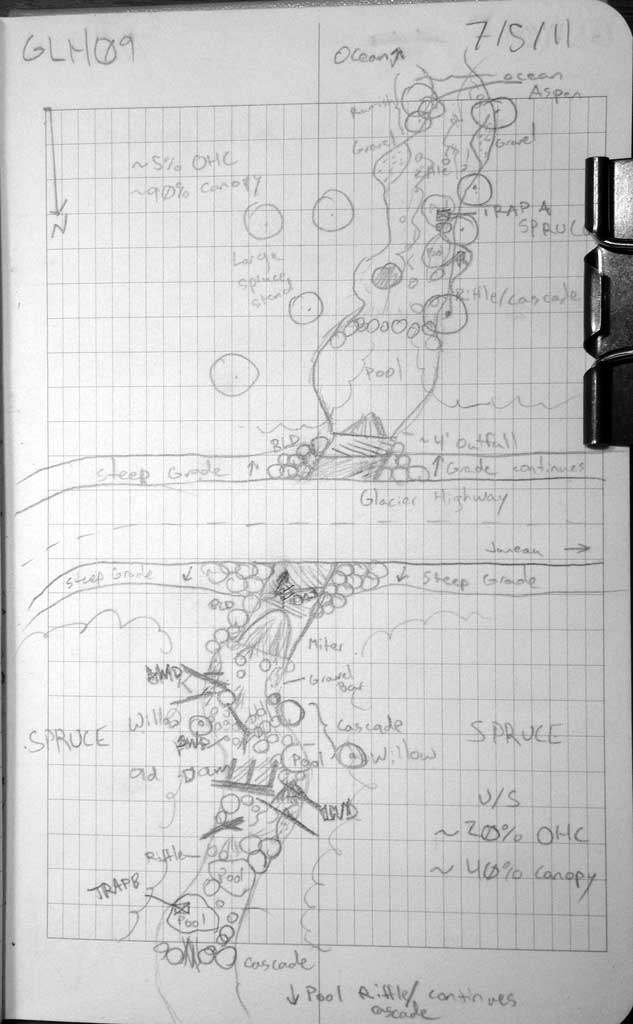 GLH09
7/5/11
Ocean↑
ocean
Aspen
Gravel
Gravel
~5% OHC
~90% canopy
N
TRAP A
SPRUC
Large
spruce
stand
Pool
Riffle/cascade
Pool
BLD
~4' Outfall
Steep Grade ↑
↑ Grade continues
Glacier Highway
Juneau →
Steep Grade ↓
↓ Steep Grade
BLD
Miter
Gravel
Bar
Willow
Cascade
SPRUCE
SPRUCE
Pool
Willow
old Dam
LWD
U/S
~20% OHC
~40% canopy
Riffle
Pool
TRAP B
Pool
cascade
↓ Pool Riffle/ continues
cascade